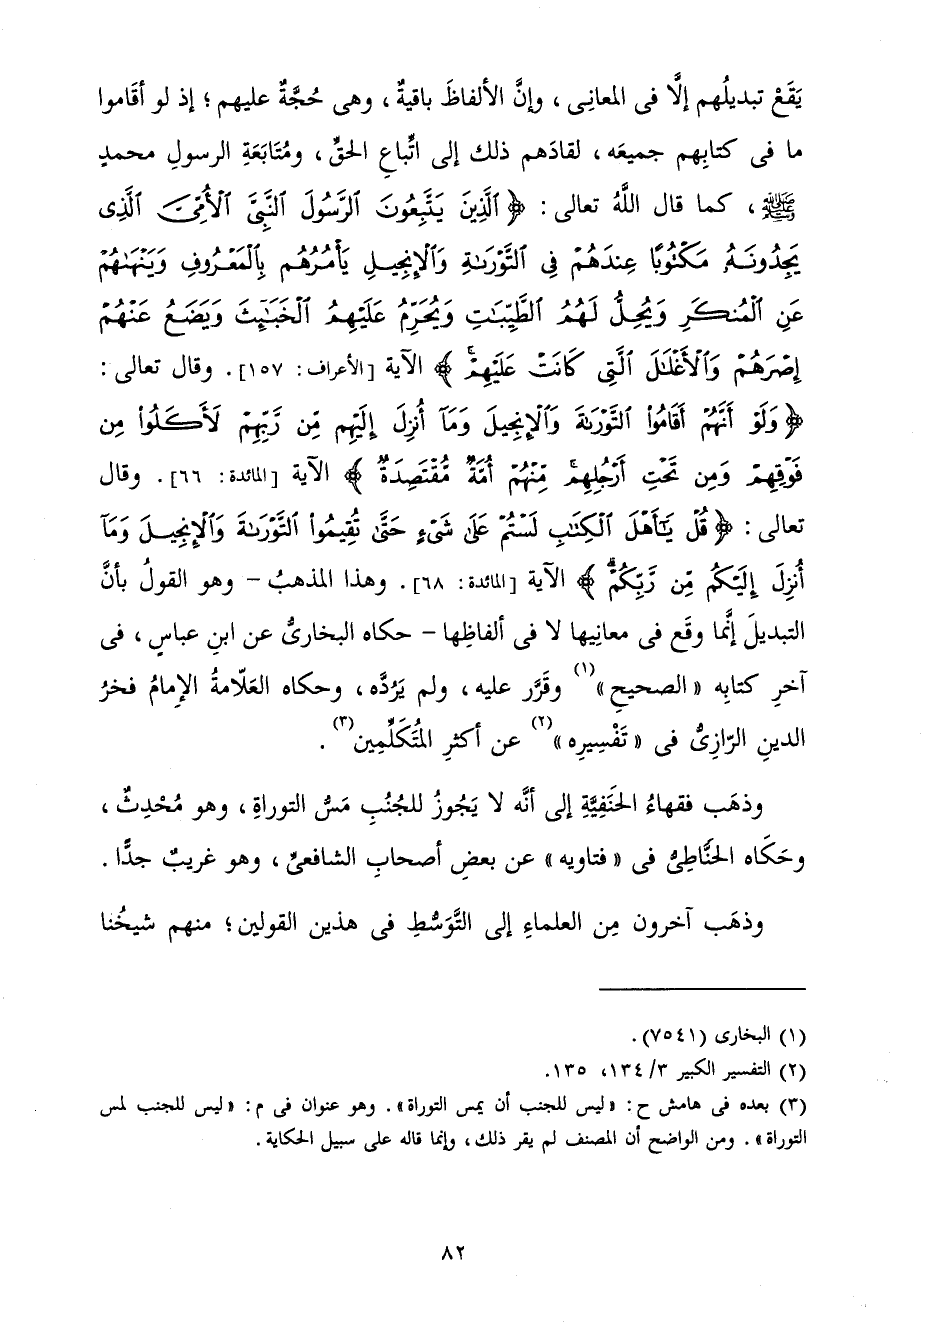 يَقَعْ تبديلُهم إلَّا فى المعانِى ، وإنَّ الألفاظَ باقيةٌ ، وهى حُجَّةٌ عليهم ؛ إذ لو أقَاموا
ما فى كتابِهم جميعَه ، لقادَهم ذلك إلى اتِّباعِ الحقِّ ، ومُتَابَعَةِ الرسولِ محمدٍ
ﷺ ، كما قال اللَّهُ تعالى : ﴿ ٱلَّذِينَ يَتَّبِعُونَ ٱلرَّسُولَ ٱلنَّبِىَّ ٱلْأُمِّىَّ ٱلَّذِى
يَجِدُونَهُۥ مَكْتُوبًا عِندَهُمْ فِى ٱلتَّوْرَىٰةِ وَٱلْإِنجِيلِ يَأْمُرُهُم بِٱلْمَعْرُوفِ وَيَنْهَىٰهُمْ
عَنِ ٱلْمُنكَرِ وَيُحِلُّ لَهُمُ ٱلطَّيِّبَٰتِ وَيُحَرِّمُ عَلَيْهِمُ ٱلْخَبَٰٓئِثَ وَيَضَعُ عَنْهُمْ
إِصْرَهُمْ وَٱلْأَغْلَٰلَ ٱلَّتِى كَانَتْ عَلَيْهِمْ ۚ ﴾ الآية [الأعراف: ١٥٧] . وقال تعالى :
﴿ وَلَوْ أَنَّهُمْ أَقَامُوا۟ ٱلتَّوْرَىٰةَ وَٱلْإِنجِيلَ وَمَآ أُنزِلَ إِلَيْهِم مِّن رَّبِّهِمْ لَأَكَلُوا۟ مِن
فَوْقِهِمْ وَمِن تَحْتِ أَرْجُلِهِم ۚ مِّنْهُمْ أُمَّةٌ مُّقْتَصِدَةٌ ۖ ﴾ الآية [المائدة: ٦٦] . وقال
تعالى : ﴿ قُلْ يَٰٓأَهْلَ ٱلْكِتَٰبِ لَسْتُمْ عَلَىٰ شَىْءٍ حَتَّىٰ تُقِيمُوا۟ ٱلتَّوْرَىٰةَ وَٱلْإِنجِيلَ وَمَآ
أُنزِلَ إِلَيْكُم مِّن رَّبِّكُمْ ۗ ﴾ الآية [المائدة: ٦٨] . وهذا المذهبُ – وهو القولُ بأنَّ
التبديلَ إنَّما وقَع فى معانِيها لا فى ألفاظِها – حكاه البخارىُّ عن ابنِ عباسٍ ، فى
آخرِ كتابِه « الصحيحِ »(١) وقَرَّر عليه ، ولم يَرُدَّه ، وحكاه العَلّامةُ الإمامُ فخرُ
الدينِ الرّازِىُّ فى « تَفْسِيرِه »(٢) عن أكثرِ المُتَكَلِّمِين(٣) .
وذهَب فقهاءُ الحَنَفِيَّةِ إلى أنَّه لا يَجُوزُ للجُنُبِ مَسُّ التوراةِ ، وهو مُحْدِثٌ ،
وحَكَاه الحَنَّاطِىُّ فى « فتاويه » عن بعضِ أصحابِ الشافعىِّ ، وهو غريبٌ جدًّا .
وذهَب آخرون مِن العلماءِ إلى التَّوَسُّطِ فى هذين القولين ؛ منهم شيخُنا
(١) البخارى (٧٥٤١) .
(٢) التفسير الكبير ٣/ ١٣٤، ١٣٥.
(٣) بعده فى هامش ح : « ليس للجنب أن يمس التوراة » . وهو عنوان فى م : « ليس للجنب لمس
التوراة » . ومن الواضح أن المصنف لم يقر ذلك ، وإنما قاله على سبيل الحكاية .
٨٢